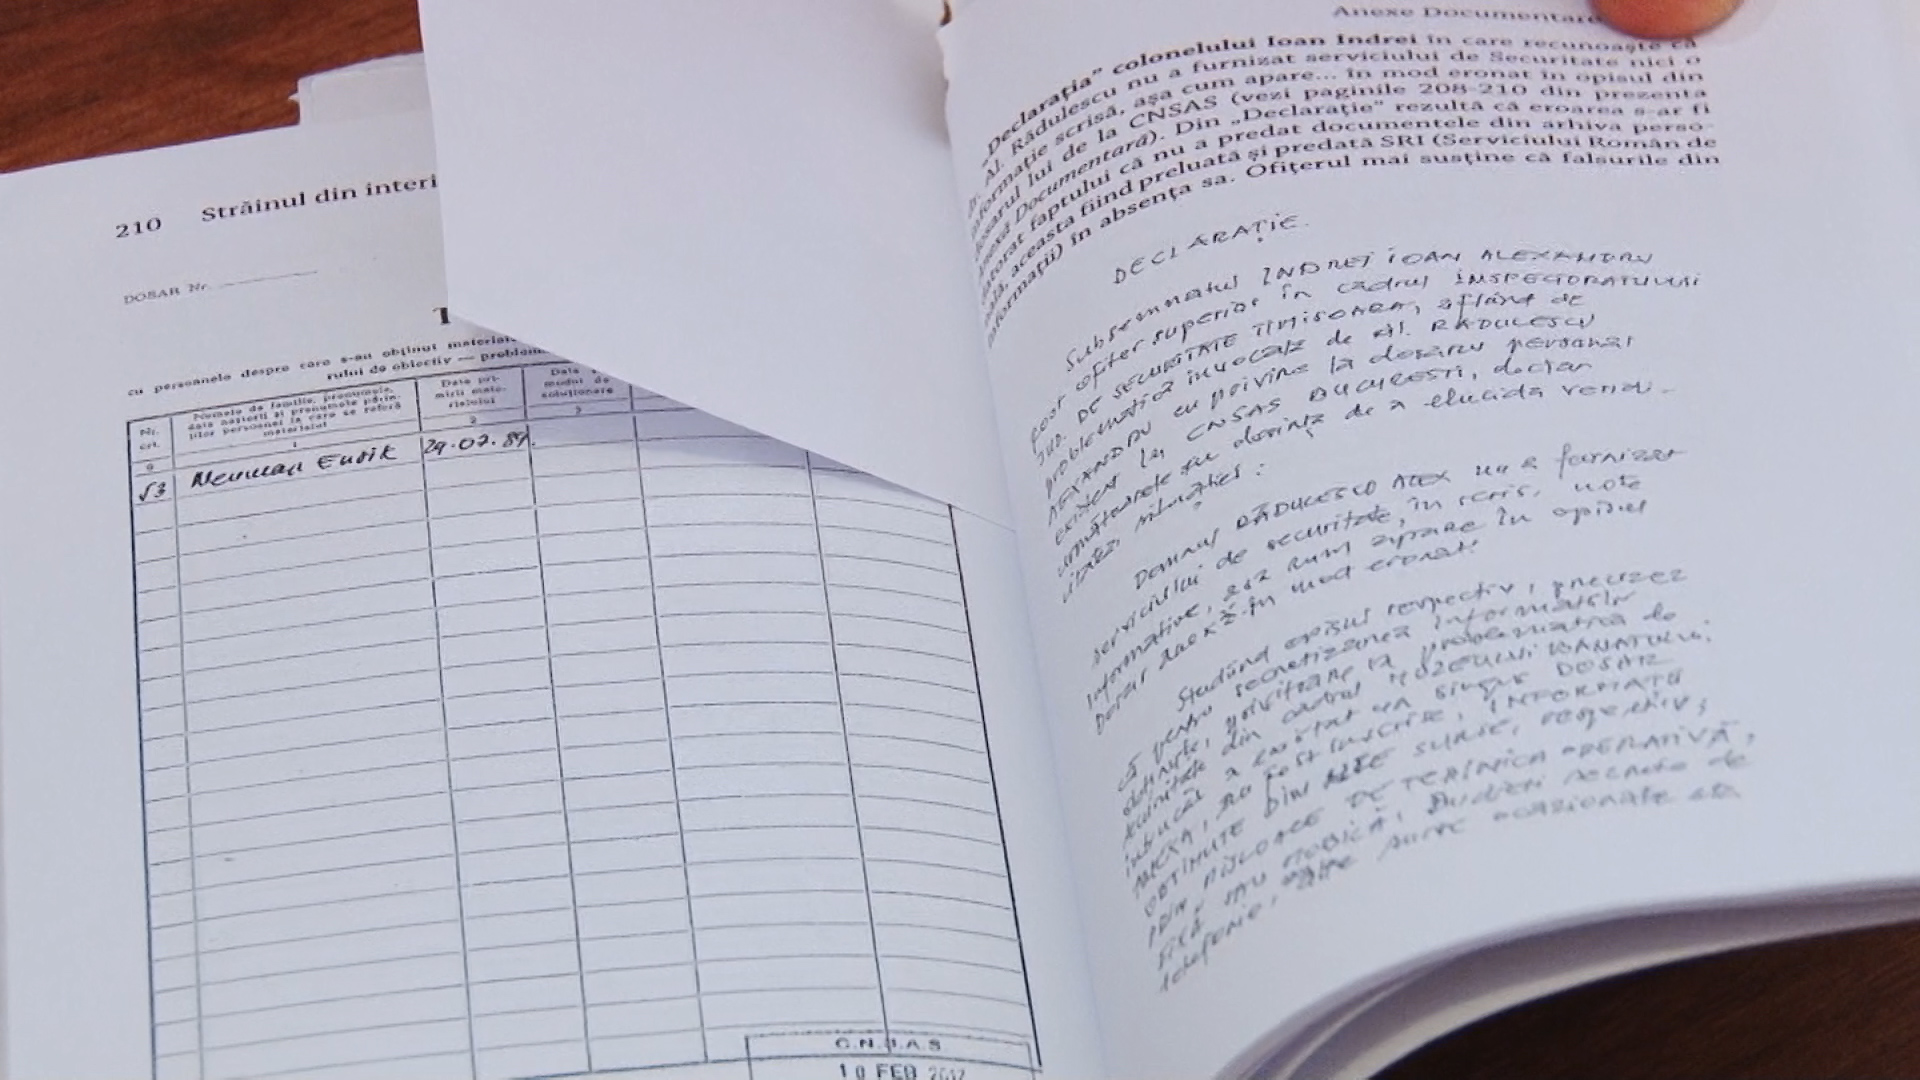 210 Străinul din interi
DOSAR Nr.
T
cu persoanele despre care s-au obținut materiale
rului de obiectiv — problemă
Nr. crt.
Numele de familie, prenumele,
data nașterii și prenumele părin-
ților persoanei la care se referă
materialul
Data pri-
mirii mate-
rialului
Data
modul de
soluționare
0 1 2 3
53 29.07.89.
C.N.S.A.S
10 FEB
Anexe Documentare
„Declarația” colonelului Ioan Indrei în care recunoaște că
Al. Rădulescu nu a furnizat serviciului de Securitate nici o
informație scrisă, așa cum apare... în mod eronat în opisul din
dosarul lui de la CNSAS (vezi paginile 208-210 din prezenta
Anexă Documentară). Din „Declarație” rezultă că eroarea s-ar fi
datorat faptului că nu a predat documentele din arhiva perso-
nală, aceasta fiind preluată și predată SRI (Serviciului Român de
Informații) în absența sa. Ofițerul mai susține că falsurile din
DECLARAȚIE.
Subsemnatul INDREI IOAN ALEXANDRU
fost ofițer superior în cadrul INSPECTORATULUI
JUD. DE SECURITATE TIMIȘOARA, aflând de
problematica invocată de Al. RĂDULESCU
ALEXANDRU cu privire la dosarul personal
existent la CNSAS BUCUREȘTI, declar
următoarele cu dorința de a elucida
situației:
Domnul RĂDULESCU ALEX nu a furnizat
serviciului de securitate, în scris, note
informative, așa cum apare în opisul
în mod eronat.
Studiind opisul respectiv, precizez
că pentru secretizarea informațiilor
obținute, privitoare la problematica de
securitate din cadrul MUZEULUI BANATULUI,
întrucât a existat un singur DOSAR
au fost înscrise, INFORMAȚII
OBȚINUTE DIN ALTE SURSE, respectiv,
PRIN MIJLOACE DE TEHNICĂ OPERATIVĂ,
FIXĂ SAU MOBILĂ, audieri secrete de
telefonie, alte surse ocazionale